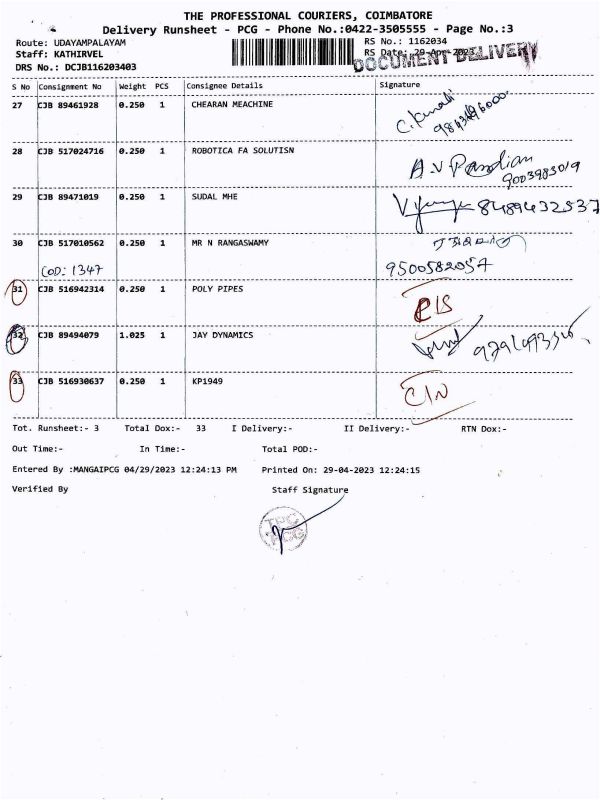 THE PROFESSIONAL COURIERS, COIMBATORE
Delivery Runsheet - PCG - Phone No.:0422-3505555 - Page No.:3
Route: UDAYAMPALAYAM
RS No.: 1162034
Staff: KATHIRVEL
RS Date: 29-Apr-2023
DOCUMENT DELIVERY
DRS No.: DCJB116203403
S No Consignment No Weight PCS Consignee Details Signature
27 CJB 89461928 0.250 1 CHEARAN MEACHINE
28 CJB 517024716 0.250 1 ROBOTICA FA SOLUTISN A.V Pandian
9003983019
29 CJB 89471019 0.250 1 SUDAL MHE 8489432537
30 CJB 517010562 0.250 1 MR N RANGASWAMY
COD: 1347 9500582057
31 CJB 516942314 0.250 1 POLY PIPES
32 CJB 89494079 1.025 1 JAY DYNAMICS
33 CJB 516930637 0.250 1 KP1949
Tot. Runsheet:- 3 Total Dox:- 33 I Delivery:- II Delivery:- RTN Dox:-
Out Time:- In Time:- Total POD:-
Entered By :MANGAIPCG 04/29/2023 12:24:13 PM Printed On: 29-04-2023 12:24:15
Verified By Staff Signature
TPC
PCG